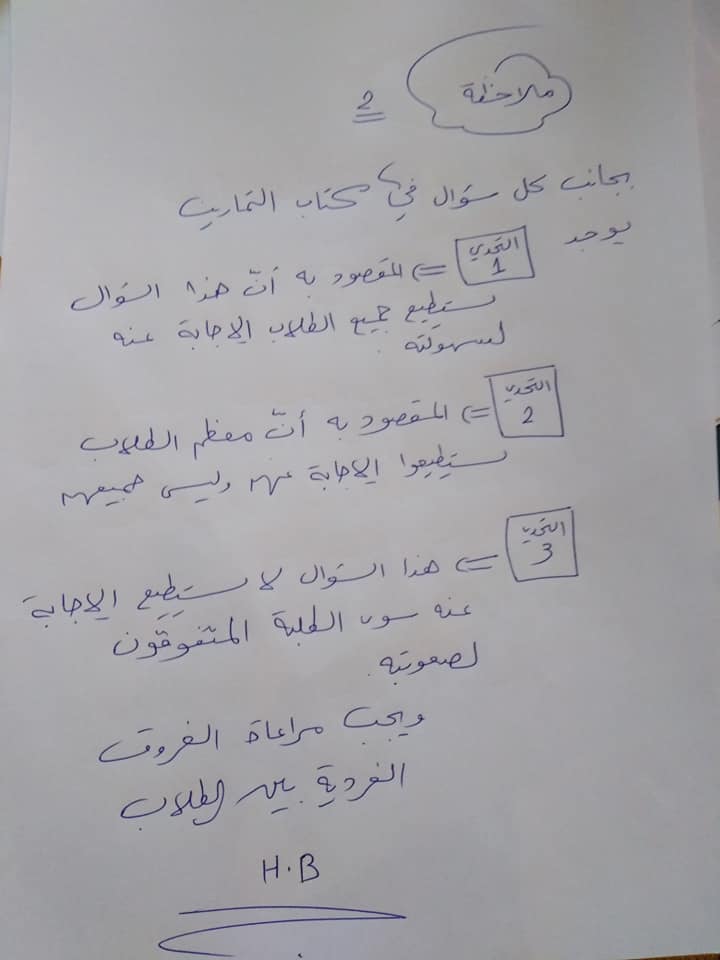 ملاحظة
2
بجانب كل سؤال في كتاب التمارين
يوجد التحدي 1 => المقصود به أنّ هذا السؤال
يستطيع جميع الطلاب الإجابة عنه
لسهولته.
التحدي 2 => المقصود به أنّ معظم الطلاب
يستطيعوا الإجابة عنه وليس جميعهم
التحدي 3 => هذا السؤال لا يستطيع الإجابة
عنه سوى الطلبة المتفوقون
لصعوبته.
ويجب مراعاة الفروق
الفردية بين الطلاب
H.B